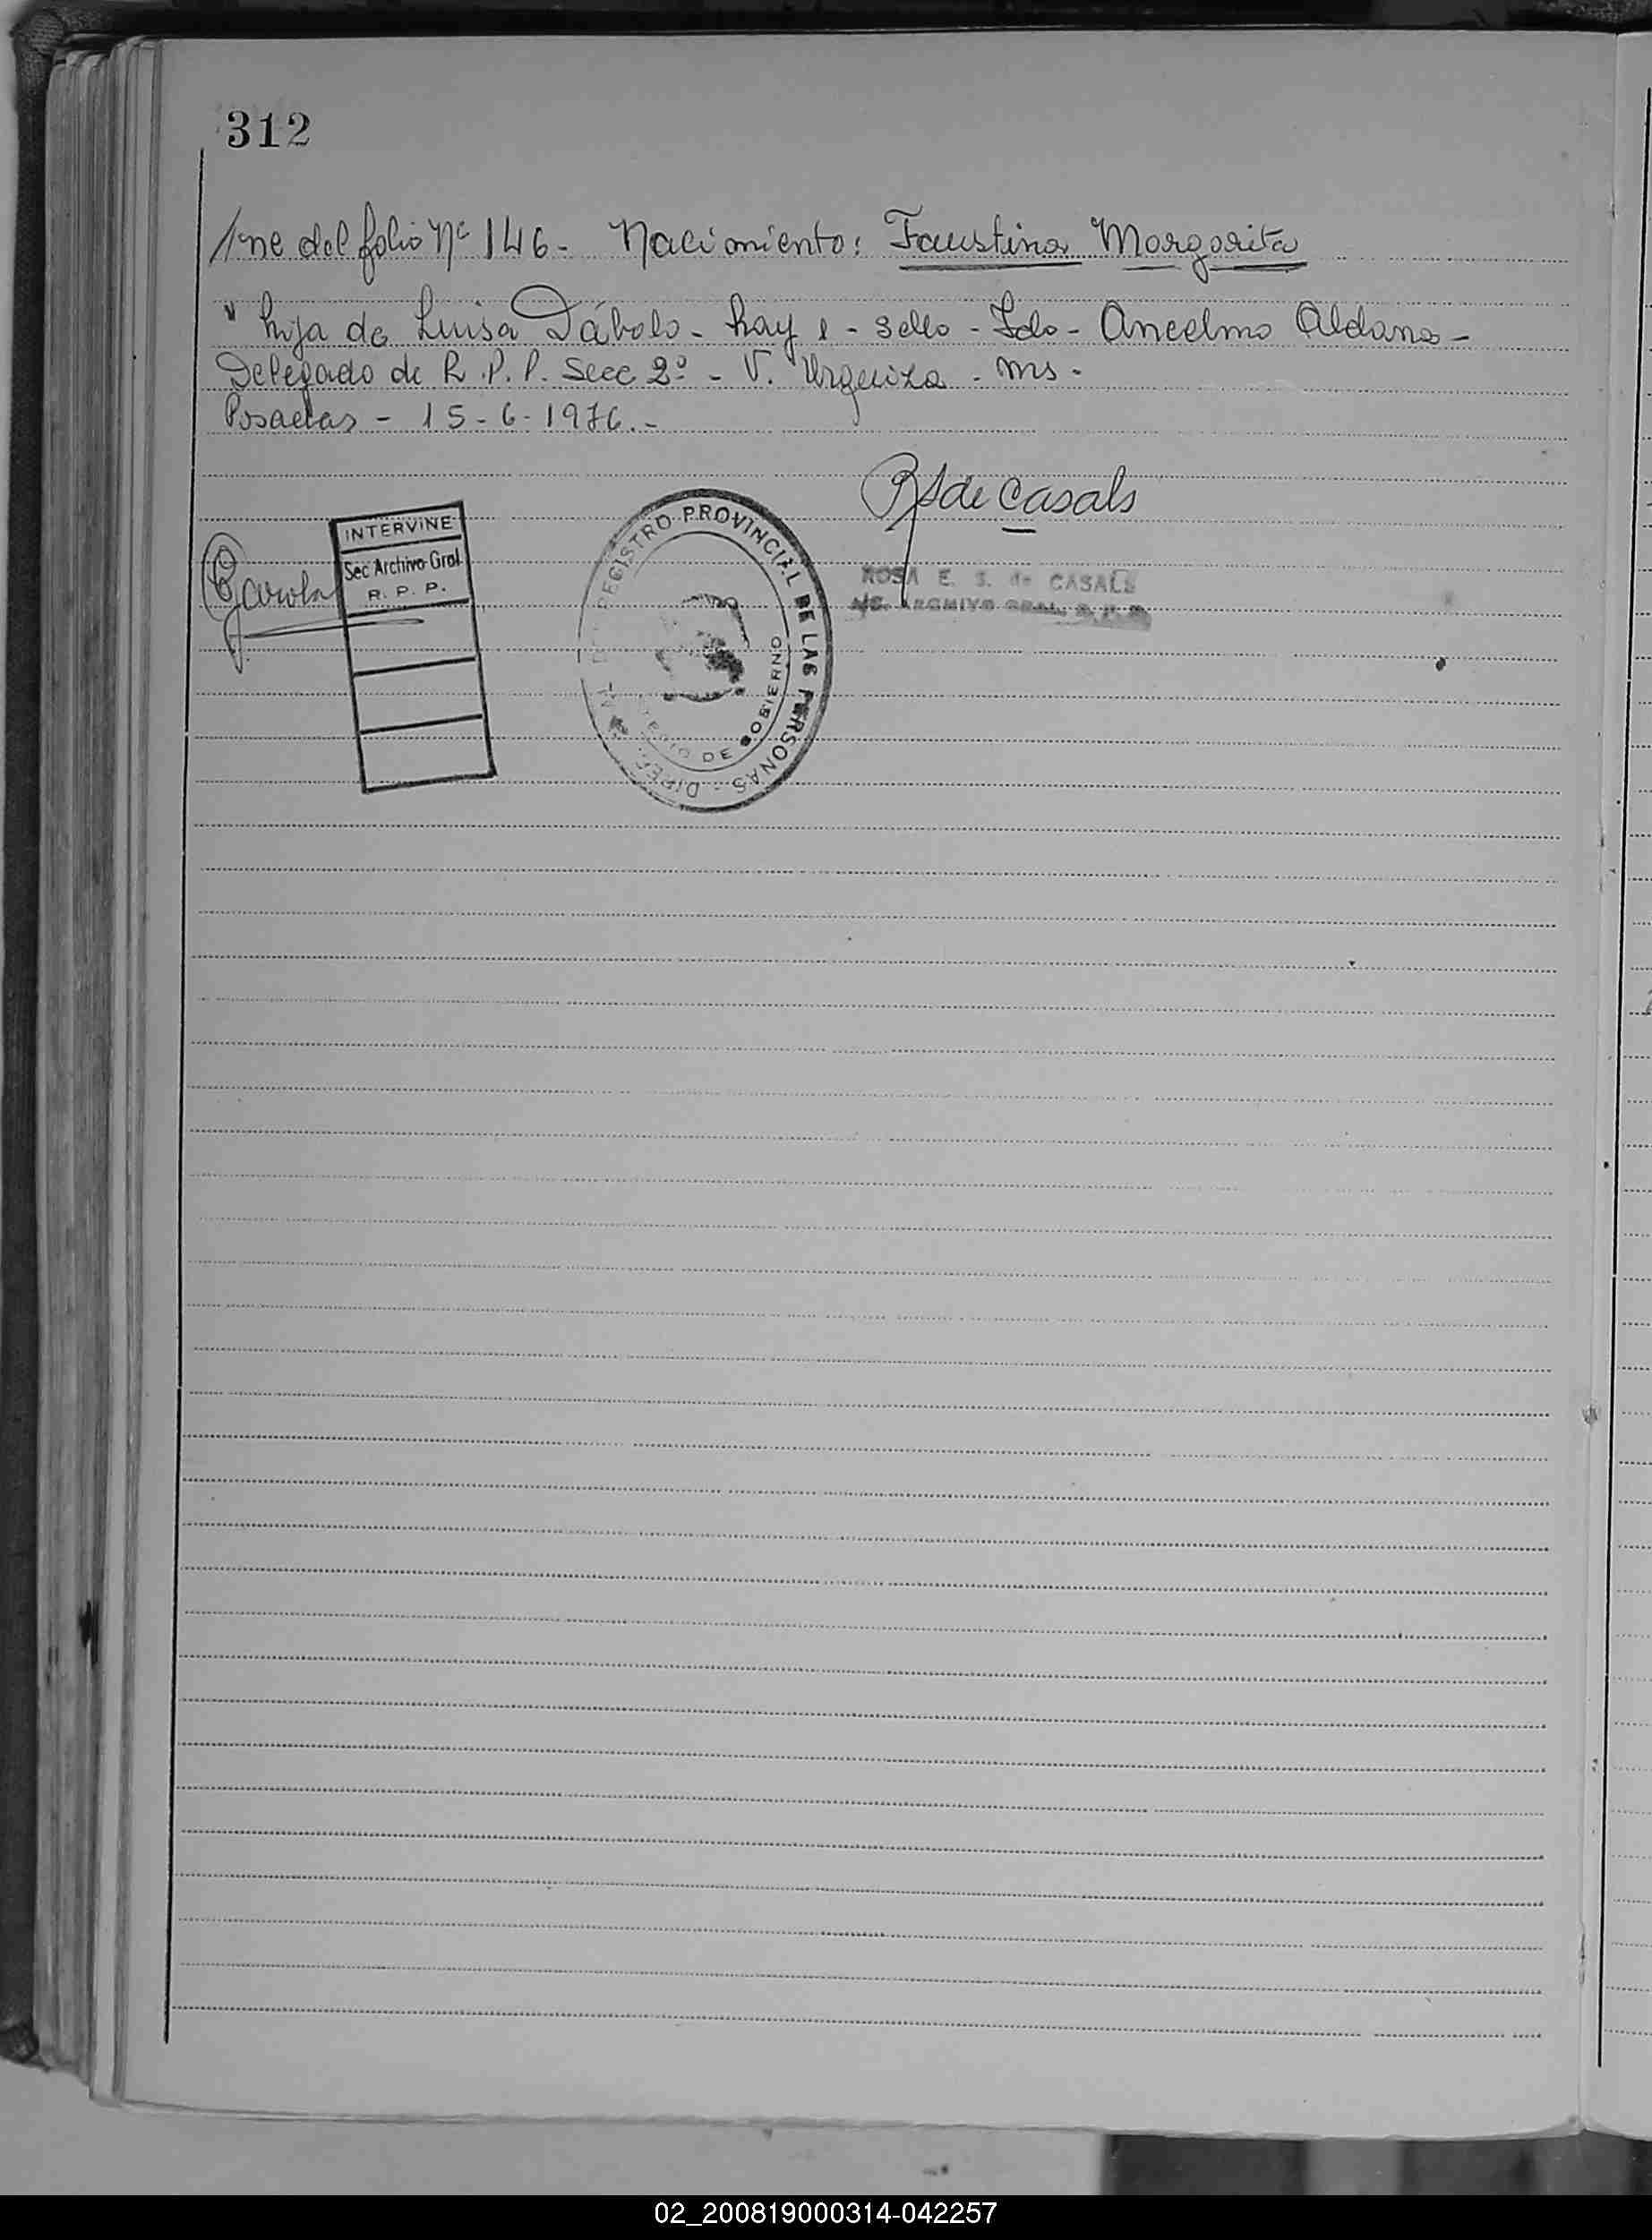 312
1ne del folio Nº 146- Nacimiento: Faustina Margarita
" hija de Luisa Dábolo- hay 1 - sello - Fdo - Ancelmo Aldana -
Delegado de R.P.P. Secc 2º - V. Urquiza - Ms -
Posadas - 15-6-1976.-
RSde Casals
INTERVINE
Sec Archivo Gral.
R. P. P.
REGISTRO PROVINCIAL DE LAS PERSONAS - DIREC
DE GOBIERNO
ROSA E. S. de CASALS
A/C. ARCHIVO GRAL. R. P. P.
02_200819000314-042257